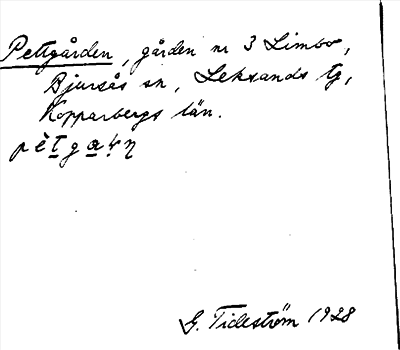 Pettgården, gården nr 3 Limbo,
Bjursås sn, Leksands tg,
Kopparbergs län.
G. Tideström 1928